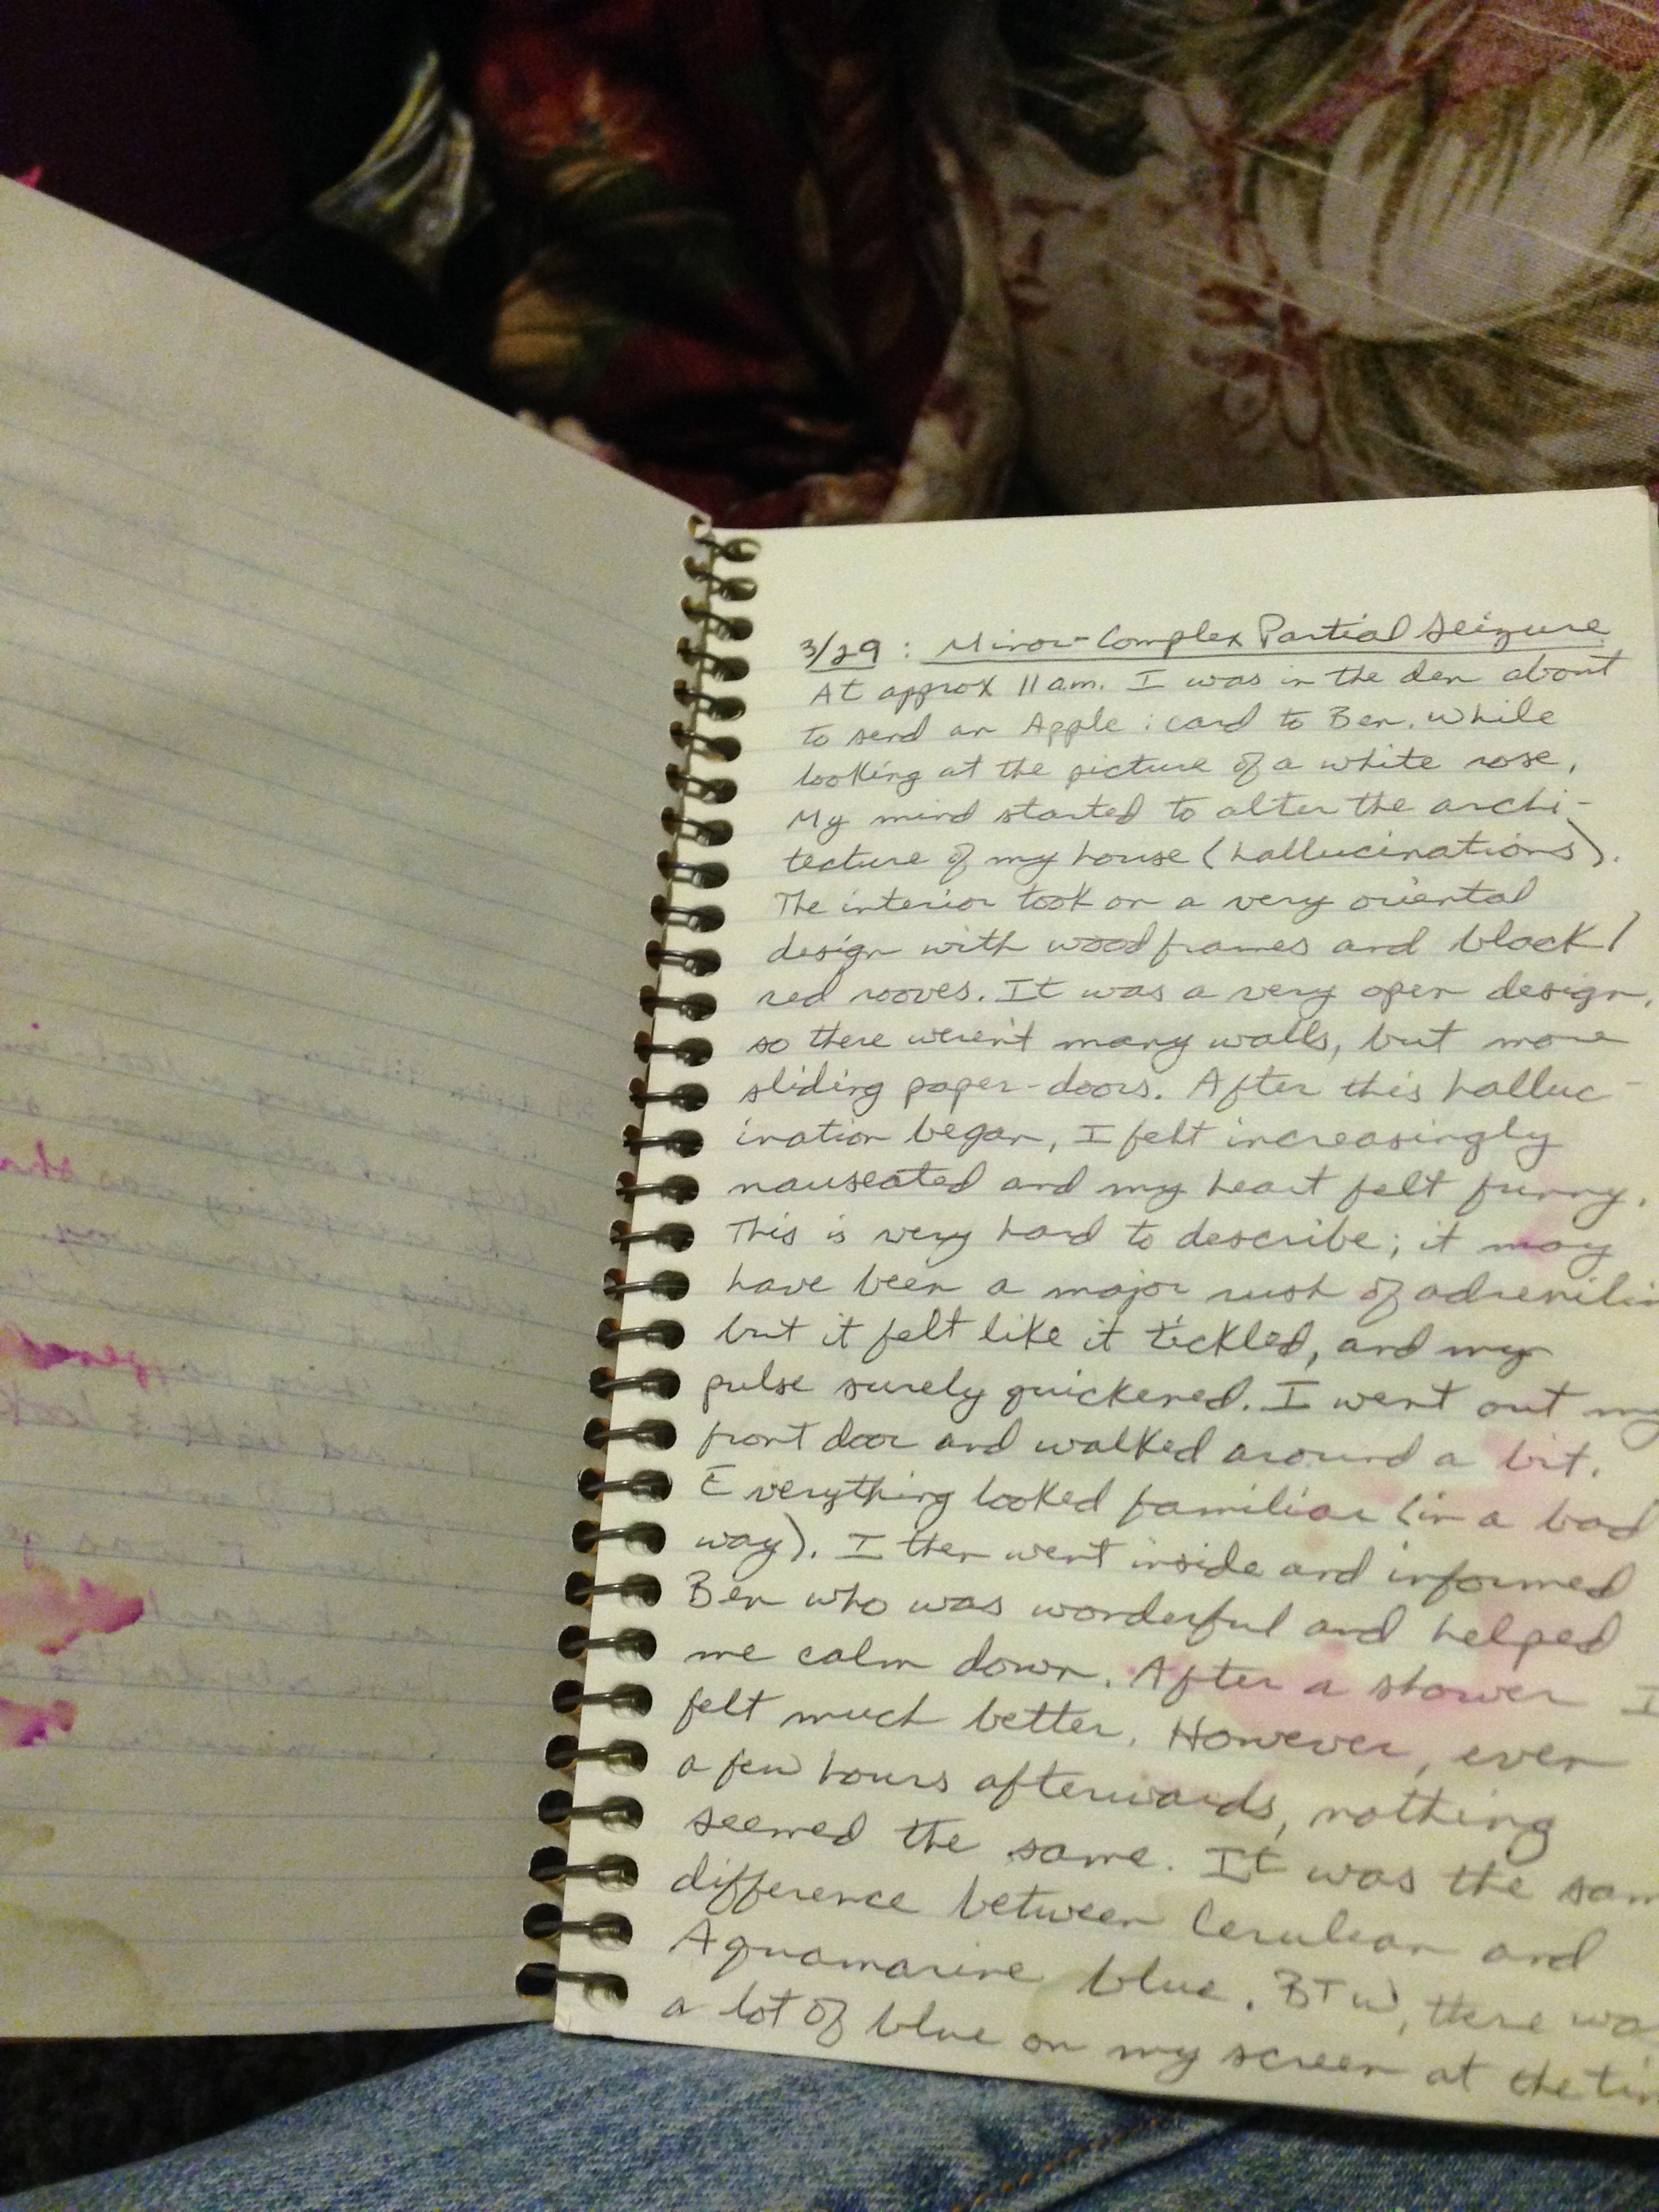 3/29 : Minor-Complex Partial Seizure
At approx 11am. I was in the den about
to send an Apple icard to Ben. while
looking at the picture of a white rose,
My mind started to alter the archi-
tecture of my house (hallucinations).
The interior took on a very oriental
design with wood frames and black/
red rooves. It was a very open design,
so there weren't many walls, but more
sliding paper-doors. After this halluc-
ination began, I felt increasingly
nauseated and my heart felt funny.
This is very hard to describe; it may
have been a major rush of adrenilin
but it felt like it tickled, and my
pulse surely quickened. I went out my
front door and walked around a bit.
Everything looked familiar (in a bad
way). I then went inside and informed
Ben who was wonderful and helped
me calm down. After a shower I
felt much better. However, even
a few hours afterwards, nothing
seemed the same. It was the sam
difference between Cerulean and
Aquamarine blue. BTW, there wa
a lot of blue on my screen at the tim